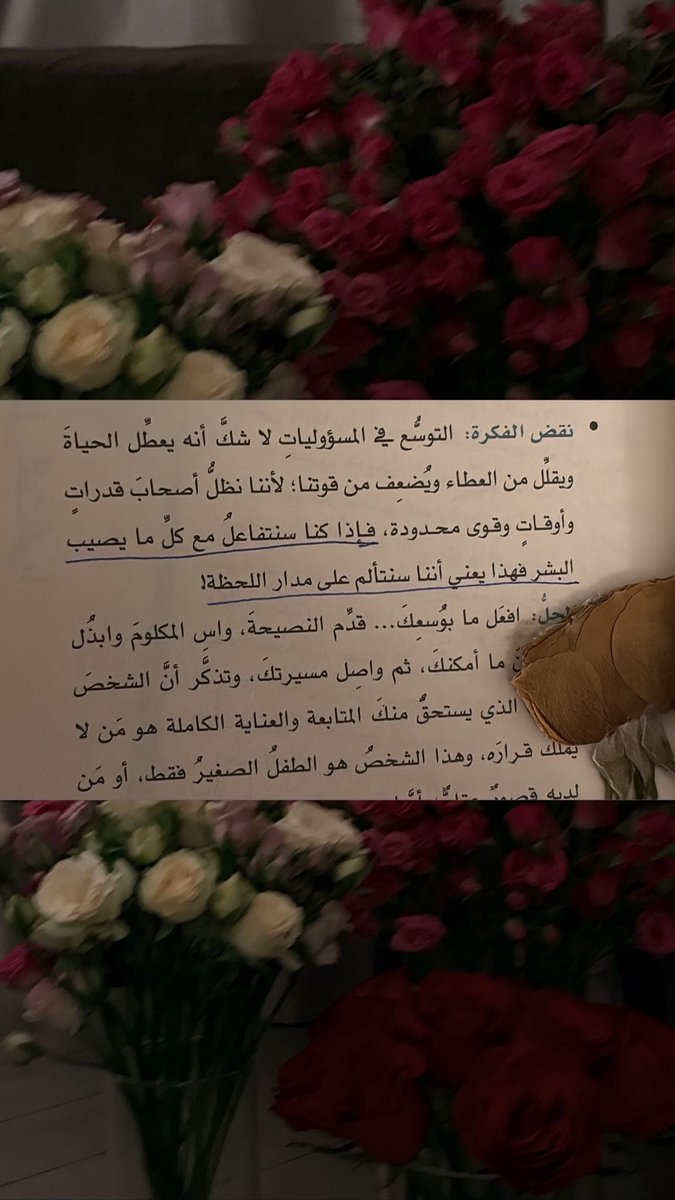 • نقض الفكرة: التوسُّع في المسؤولياتِ لا شكَّ أنه يعطِّل الحياةَ
ويقلِّل من العطاء ويُضعِف من قوتنا؛ لأننا نظلُّ أصحابَ قدراتٍ
وأوقاتٍ وقوى محدودة، فإذا كنا سنتفاعلُ مع كلِّ ما يصيب
البشر فهذا يعني أننا سنتألم على مدار اللحظة!
الحلُّ: افعَل ما بوُسعِكَ... قدِّم النصيحةَ، واسِ المكلومَ وابذُل
ما أمكنكَ، ثم واصِل مسيرتكَ، وتذكَّر أنَّ الشخصَ
الذي يستحقُّ منكَ المتابعة والعناية الكاملة هو مَن لا
يملك قرارَه، وهذا الشخصُ هو الطفلُ الصغيرُ فقط، أو مَن
لديه قصورٌ